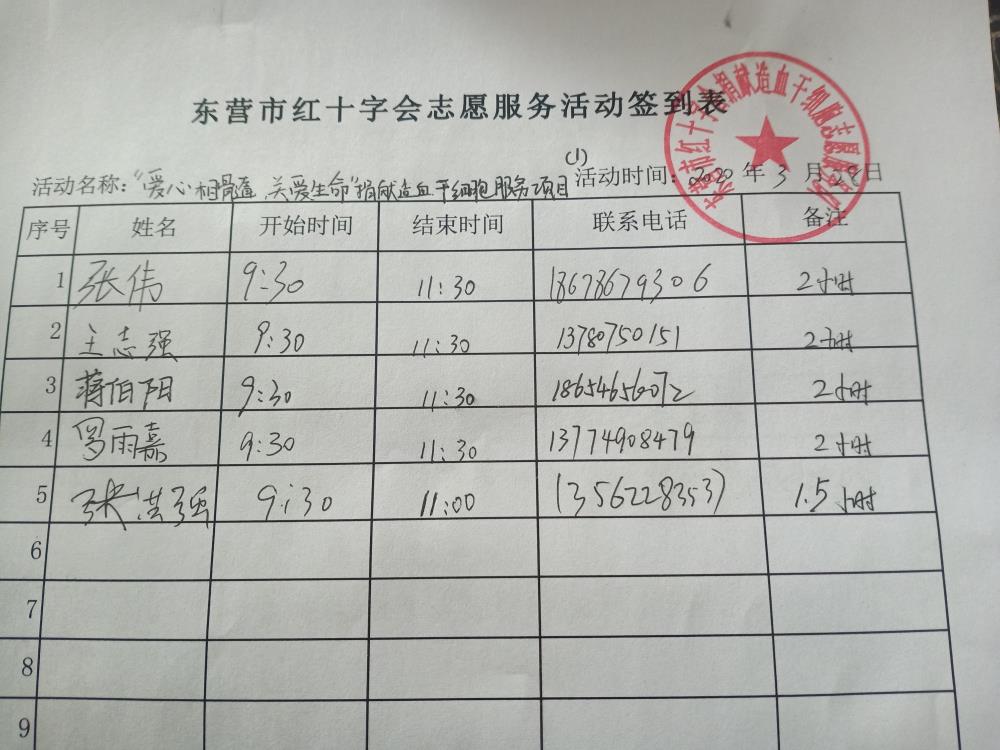 东营市红十字会志愿服务活动签到表
(1)
活动名称："爱心相髓 关爱生命"捐献造血干细胞服务项目 活动时间：2020年3月 日
序号 姓名 开始时间 结束时间 联系电话 备注
1 张伟 9:30 11:30 18678679306 2小时
2 王志强 9:30 11:30 13780750151 2小时
3 蒋伯阳 9:30 11:30 18654656072 2小时
4 罗雨嘉 9:30 11:30 13774908479 2小时
5 张洪强 9:30 11:00 13562283537 1.5小时
6
7
8
9
东营市红十字会捐献造血干细胞志愿服务队